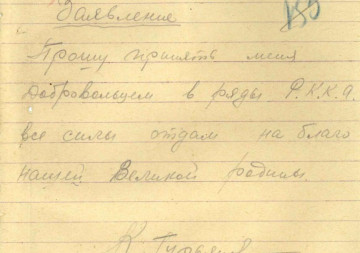 Заявление
Прошу принять меня
добровольцем в ряды Р.К.К.А.
все силы отдам на благо
нашей Великой родины.
К.